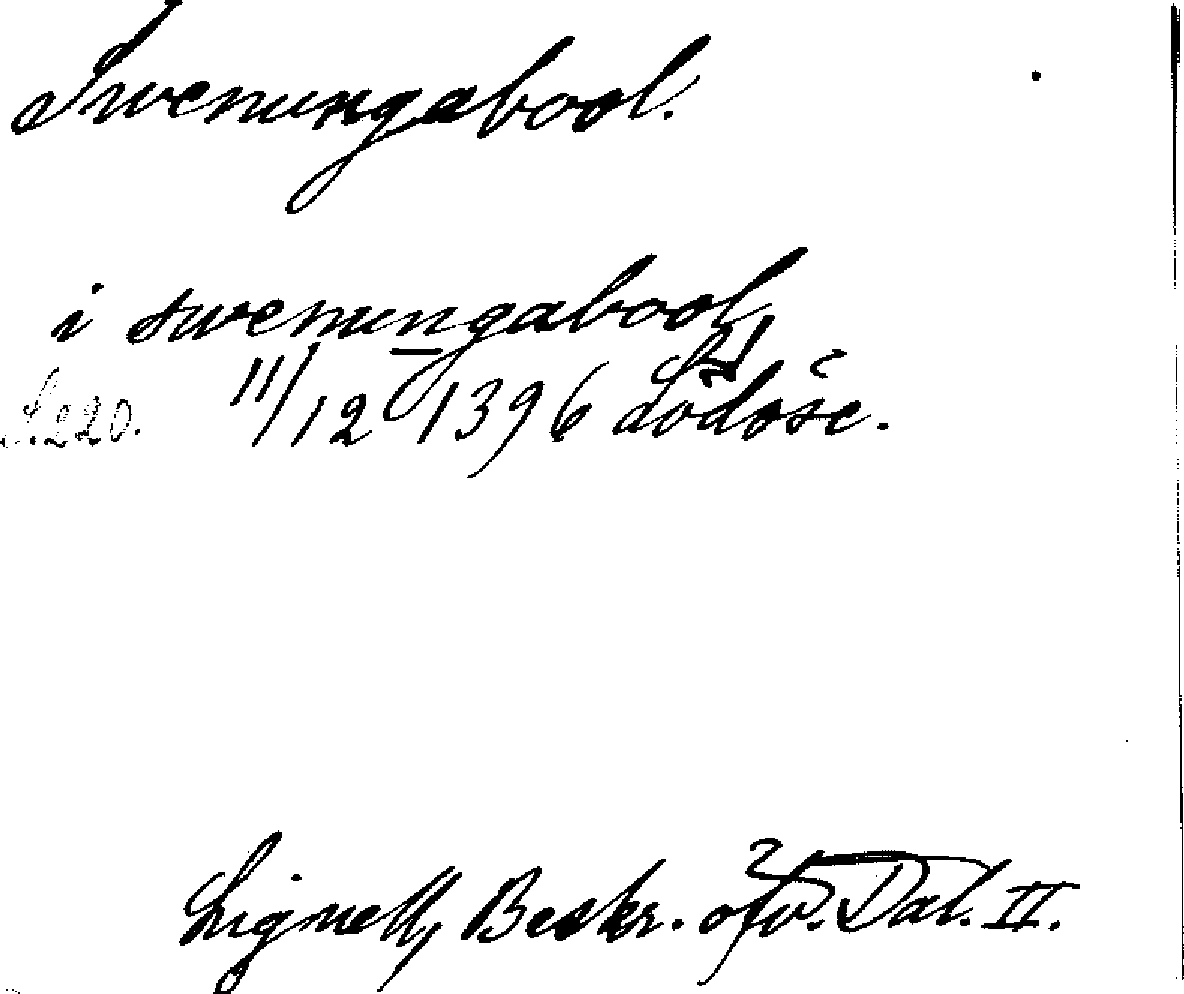 Swenungabool.
i swenungabool
S. 220. 11/12 1396 Lödöse.
Lignell, Beskr. öfv. Dal. II.